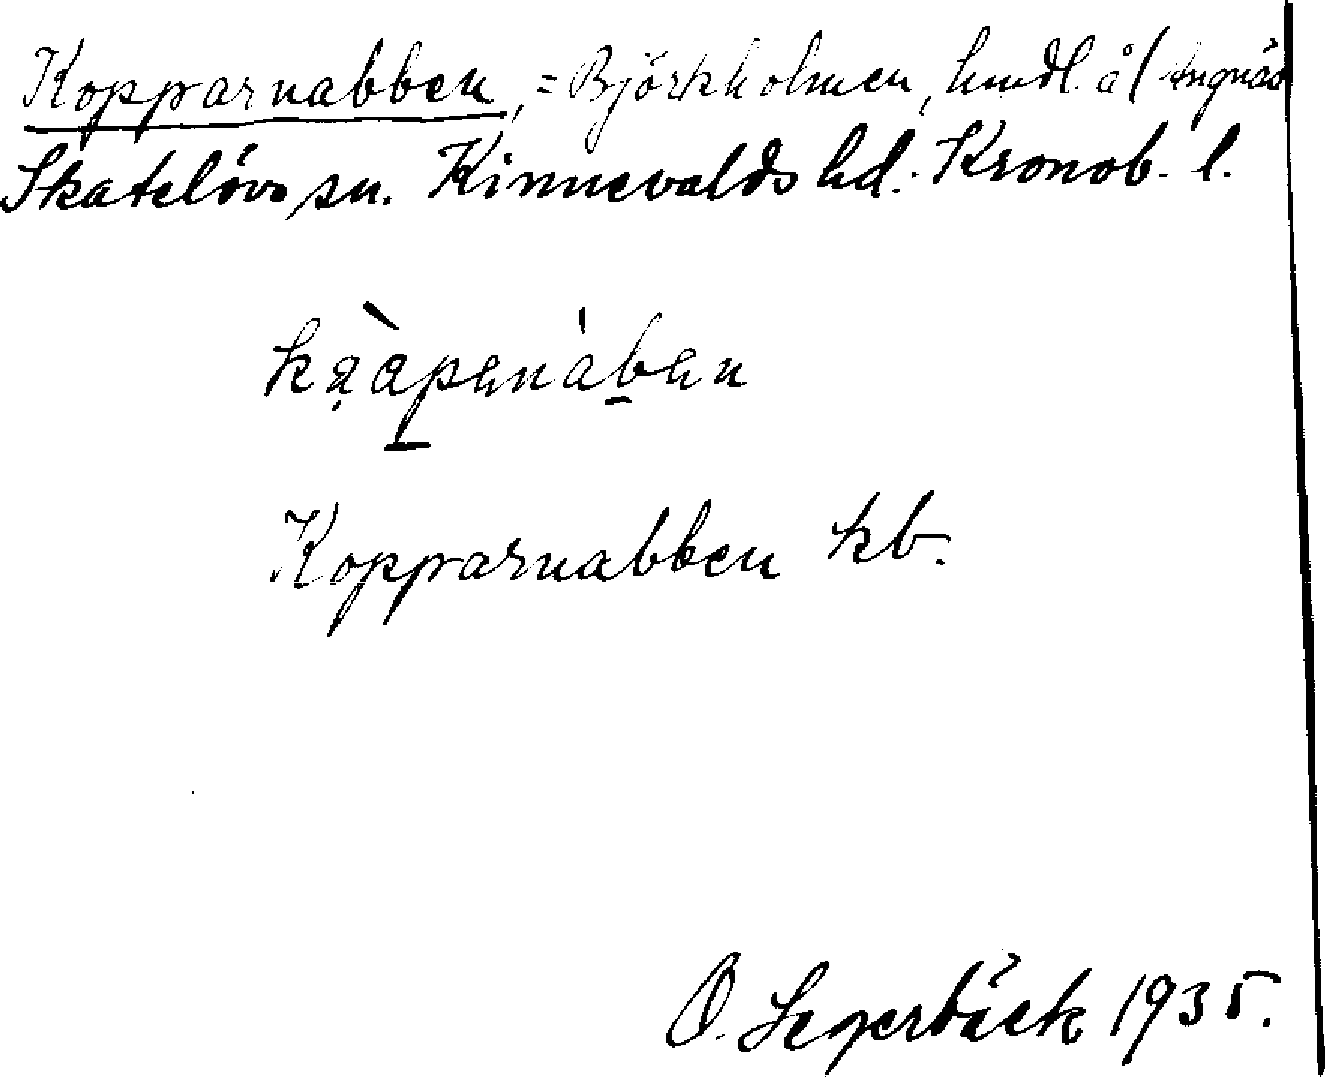 Kopparnabben, = Björkholmen, hmdl. å (Angnäs
Skatelövs sn. Kinnevalds hd. Kronob. l.
Kopparnabben kb.
O. Segerbäck 1935.